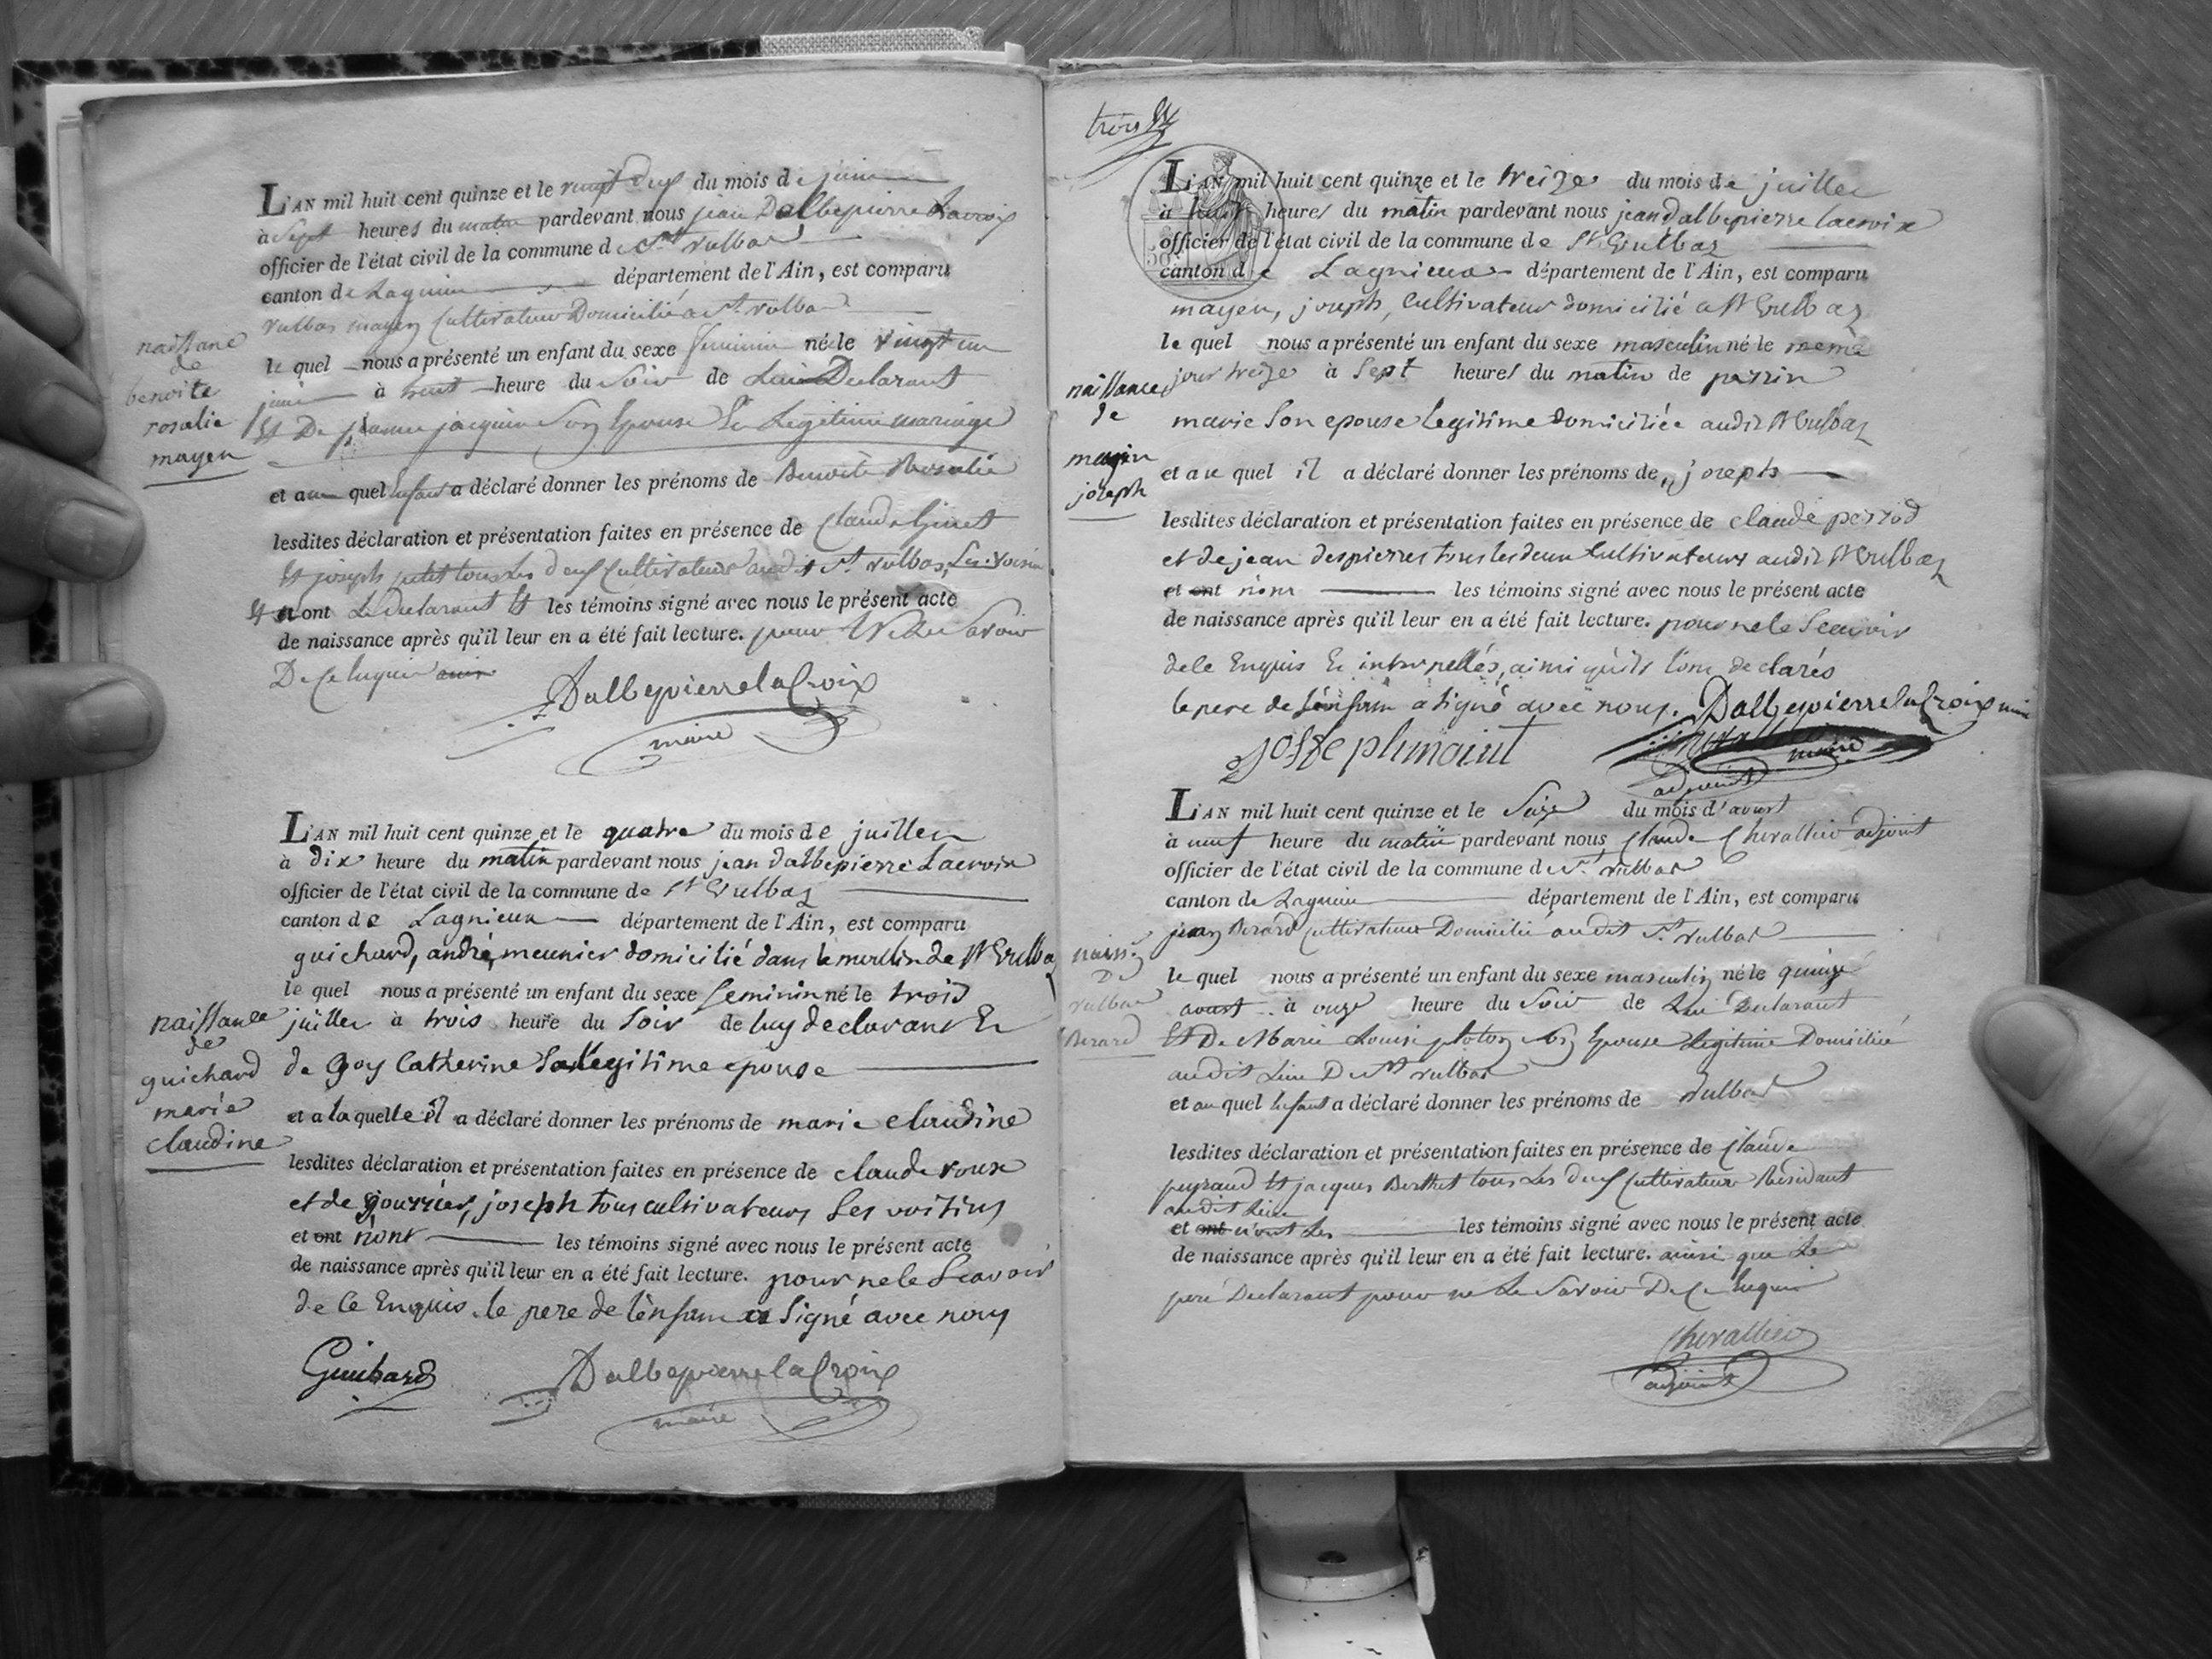 naissance
de
benoite
rosalie
mayen
L'AN mil huit cent quinze et le vingt deux du mois de juin
à Sept heures du matin pardevant nous jean Dalbepierre Lacroix
officier de l'état civil de la commune de St. vulbas
canton de Lagnieu département de l'Ain, est comparu
vulbas mayen Cultivateur Domicilié a St. vulbas
le quel nous a présenté un enfant du sexe feminin né le vingt un
juin à huit heure du Soir de Lui Declarant
Et De jacquin Son Epouse En Legitime mariage
et au quel Enfant a déclaré donner les prénoms de Benoite Rosalie
lesdites déclaration et présentation faites en présence de Claude Ginet
Et joseph petit tous Les deux Cultivateurs audit St. vulbas, Les voisin
Et n ont Le Declarant Et les témoins signé avec nous le présent acte
de naissance après qu'il leur en a été fait lecture. pour Ne Le Savoir
De Ce Enquis
Dalbepierre la Croix
maire
naissance
de
guichard
marie
claudine
L'AN mil huit cent quinze et le quatre du mois de juillet
à dix heure du matin pardevant nous jean dalbepierre Lacroix
officier de l'état civil de la commune de St Vulbaz
canton de Lagnieux département de l'Ain, est comparu
guichard, andré, meunier domicilié dans le moulin de St Vulbaz
le quel nous a présenté un enfant du sexe feminin né le trois
juillet à trois heure du Soir de luy declarant Et
de goy Catherine Sa legitime epouse
et a laquelle il a déclaré donner les prénoms de marie claudine
lesdites déclaration et présentation faites en présence de claude roux
et de gourrier, joseph tous cultivateurs Ses voisins
et ont n'ont les témoins signé avec nous le présent acte
de naissance après qu'il leur en a été fait lecture. pour ne le Scavoir
de Ce Enquis. le pere de l'enfant a Signé avec nous
Guichard Dalbepierre la Croix
maire
trois
naissance
de
mayen
joseph
L'AN mil huit cent quinze et le treize du mois de juillet
à huit heures du matin pardevant nous jean dalbepierre lacroix
officier de l'état civil de la commune de St Vulbaz
canton de Lagnieux département de l'Ain, est comparu
mayen, joseph, Cultivateur domicilié a St Vulbaz
le quel nous a présenté un enfant du sexe masculin né le meme
jour treize à Sept heures du matin de perrin
marie Son epouse legitime domiciliée audit St Vulbaz
et au quel il a déclaré donner les prénoms de joseph
lesdites déclaration et présentation faites en présence de claude perrod
et de jean despierres tous les deux Cultivateurs audit St Vulbaz
et ont n'ont les témoins signé avec nous le présent acte
de naissance après qu'il leur en a été fait lecture. pour ne le Scavoir
de Ce Enquis Et interpellés, ainsi qu'ils l'ont declarés
le pere de l'enfant a Signé avec nous. Dalbepierre la Croix
maire
adjoint
naiss.
De
vulbas
Berard
L'AN mil huit cent quinze et le Seize du mois d'avout
à neuf heure du matin pardevant nous Claude Chevallier adjoint
officier de l'état civil de la commune de St. vulbas
canton de Lagnieu département de l'Ain, est comparu
jean Berard Cultivateur Domicilié audit St. vulbas
le quel nous a présenté un enfant du sexe masculin né le quinze
avout à onze heure du Soir de Lui Declarant
Et De Marie Louise Son Epouse Legitime Domiciliée
audit Lieu De St vulbas
et au quel Enfant a déclaré donner les prénoms de Vulbas
lesdites déclaration et présentation faites en présence de Claude
peyraud Et jacques Berthet tous Les deux Cultivateurs Residant
audit Lieu
et ont n'ont Les les témoins signé avec nous le présent acte
de naissance après qu'il leur en a été fait lecture. ainsi que Le
pere Declarant pour ne Le Savoir De Ce Enquis
Chevallier
adjoint